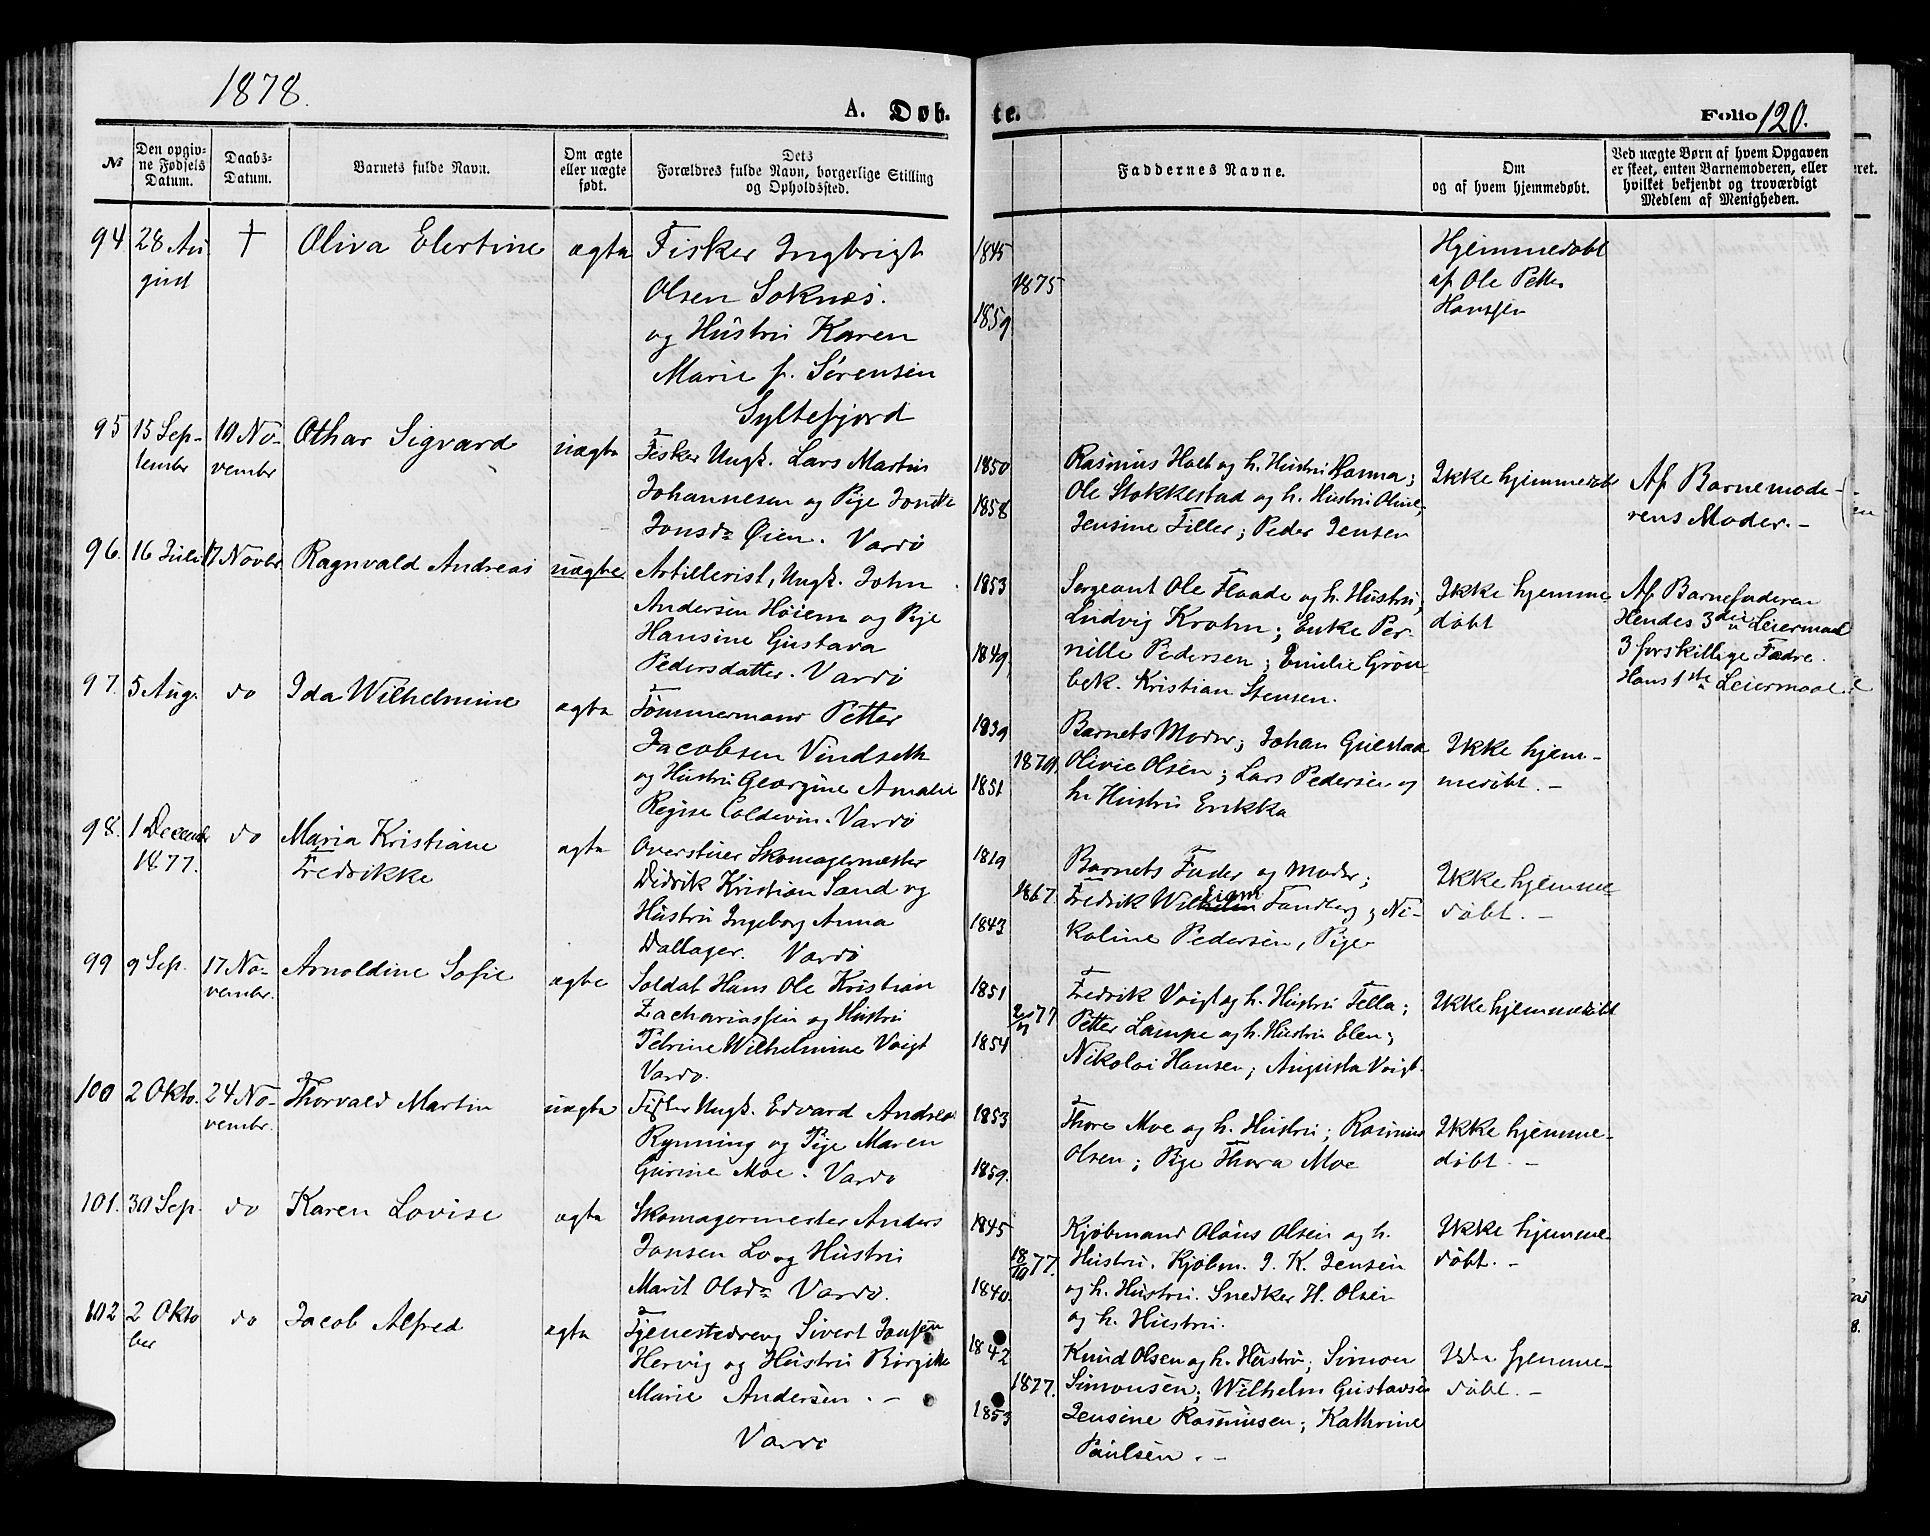 1878.
A. Døb.
te.
Folio 120.
№
Den opgiv-
ne Fødsels
Datum.
Daabs-
Datum.
Barnets fulde Navn.
Om ægte
eller uægte
født.
Dets
Forældres fulde Navn, borgerlige Stilling
og Opholdssted.
Faddernes Navne.
Om
og af hvem hjemmedøbt.
Ved uægte Børn af hvem Opgaven
er skeet, enten Barnemoderen, eller
hvilket bekjendt og troværdigt
Medlem af Menigheden.
94. 28 Au
gust
†
Oliva Elertine
ægte
Fisker Ingbrigt
Olsen Soknes.
og Hustru Karen
Marie f. Sørensen
Syltefjord
1845
1875
1859
Hjemmedøbt
af Ole Petter
Hansen
95 15 Sep-
tember
10 No-
vembr
Othar Sigvard
uægte
Fisker Ungk. Lars Martin
Johannesen og Pige
Jonsdr Øien. Vardø
1850
1858
Rasmus Holt og h. Hustru Hanna;
Ole Stokkestad og h. Hustru Oline;
Jensine Filler; Peder Jensen
Ikke hjemmedøbt
Af Barnemode-
rens Moder. -
96. 16 Juli
17 Novbr
Ragnvald Andreas
uægte
Artillerist, Ungk. John
Andersen Høiem og Pige
Hansine Gustava
Pedersdatter. Vardø
1853
1849
Sergeant Ole Flaade og h. Hustru;
Ludvig Krohn; Enke Per-
nille Pedersen; Emilie Grøn-
bek. Kristian Stensen.
Ikke hjemme
døbt
Af Barnefaderen
Hendes 3die Leiermaal
3 forskillige Fædre.
Hans 1ste Leiermaal
97. 5 Aug.
do
Ida Wilhelmine
ægte
Tømmermand Petter
Jacobsen Vindseth
og Hustru Georgine Amalie
Regine Coldevin. Vardø
1839
1870.
1851
Barnets Moder; Johan Gustav
Olivie Olsen; Lars Pedersen og
h. Hustru Erikka
Ikke hjem-
medøbt. -
98. 1 Decembr
1877.
do
Maria Kristiane
Fredrikke
ægte
Skomagermester
Didrik Kristian Sand og
Hustru Ingeborg Anna
Dallager. Vardø
1819
1867.
1843
Barnets Fader og Moder;
Fredrik Tandberg; Ni-
koline Pedersen, Pige
Ikke hjemme
døbt. -
99 9 Sep.
17 No-
vembr.
Arnoldine Sofie
ægte
Soldat Hans Ole Kristian
Zachariassen og Hustru
Petrine Wilhelmine Voigt
Vardø.
1851
77
1854
Fredrik Voigt og h. Hustru Tella;
Petter Lampe og h. Hustru Elen;
Nikolai Hansen; Augusta Voigt.
Ikke hjemmedøbt
100 2 Okto.
24 No-
vembr.
Thorvald Martin
uægte
Fisker Ungk. Edvard Andreas
Rynning og Pige Maren
Gurine Moe. Vardø
1853
1859.
Thore Moe og h. Hustru; Rasmus
Olsen; Pige Thora Moe
Ikke hjemme-
døbt. -
101. 30 Sep.
do
Karen Lovise
ægte
Skomagermester Anders
Jonsen Lo og Hustru
Marit Olsdr Vardø.
1845
18/10 77.
1840.
Kjøbmand Olaus Olsen og h.
Hustru. Kjøbm. J. K. Jensen
og h. Hustru. Snedker H. Olsen
og h. Hustru.
Ikke hjemme
døbt. -
102 2 Okto
ber
do
Jacob Alfred
ægte
Tjenestedreng Sivert Jonsen
Hervig og Hustru Birgitte
Marie Andersen. -
Vardø
1842
1877.
1853
Knud Olsen og h. Hustru; Simon
Simonsen; Wilhelm Gustavsen
Jensine Rasmusen; Kathrine
Paulsen. -
Ikke hjemme-
døbt. -